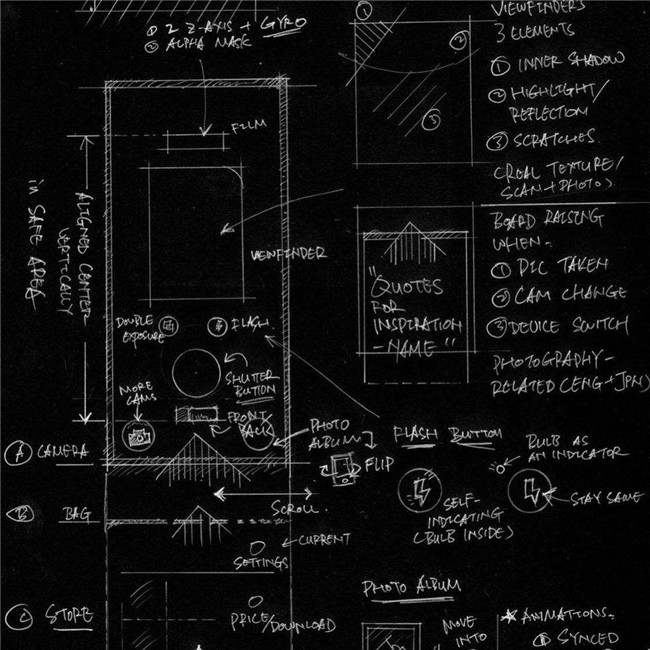 ① 2 Z-AXIS + GYRO
② ALPHA MASK
FILM
VIEWFINDER
ALIGNED CENTER
VERTICALLY
in SAFE AREA
DOUBLE
EXPOSURE
FLASH
SHUTTER
BUTTON
MORE
CAMS
FRONT/
BACK
PHOTO
ALBUM
FLIP
Ⓐ CAMERA
SCROLL
Ⓑ BAG
CURRENT
SETTINGS
Ⓒ STORE
PRICE/DOWNLOAD
①
②
③
VIEWFINDERS
3 ELEMENTS
① INNER SHADOW
② HIGHLIGHT/
REFLECTION
③ SCRATCHES
(REAL TEXTURE/
SCAN+PHOTO)
"QUOTES
FOR
INSPIRATION
-NAME"
BOARD RAISING
WHEN-
① PIC TAKEN
② CAM CHANGE
③ DEVICE SWITCH
PHOTOGRAPHY-
RELATED (ENG+JPN)
FLASH BUTTON
BULB AS
AN INDICATOR
SELF-
INDICATING
(BULB INSIDE)
STAY SAME
PHOTO ALBUM
MOVE
INTO
ANIMATIONS-
① SYNCED